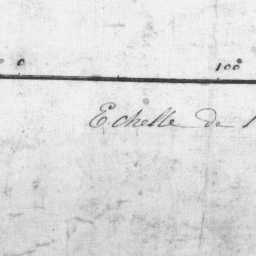 0 100
Echelle de 1